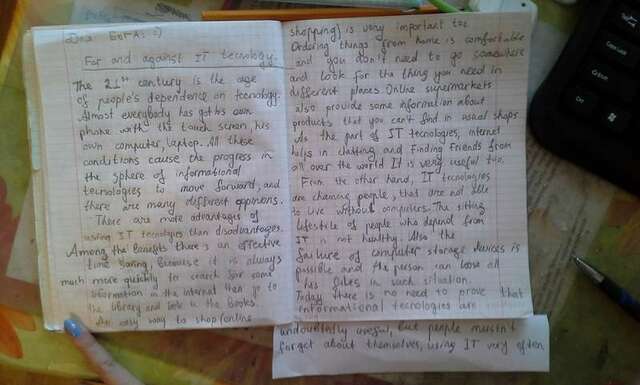 For and against IT tecnology.
The 21st century is the age
of people's dependence on tecnology.
Almost everybody has got his own
phone with the touch screen, his
own computer, laptop. All these
conditions cause the progress in
the sphere of informational
tecnologies to move forward, and
there are many different opinions.
There are more advantages of
using IT tecnologies than disadvantages.
Among the benefits there's an effective
time saving, Because it is always
much more quickly to search for some
information in the internet then go to
the library and look in the Books.
An easy way to shop (online
shopping) is very important too.
Ordering things from home is comfortable
and you don't need to go somewhere
and look for the thing you need in
different places. Online supermarkets
also provide some information about
products that you can't find in usual shops
As the part of IT tecnologies, internet
helps in chatting and finding friends from
all over the world. It is very useful too.
From the other hand, IT tecnologies
are chaining people, that are not able
to live without computers. The sitting
lifestile of people who depend from
IT is not healthy. Also the
failure of computer storage devices is
possible and the person can loose all
his files in such situation.
Today there is no need to prove that
informational tecnologies are
undoubtedly useful, but people mustn't
forget about themselves, using IT very often.